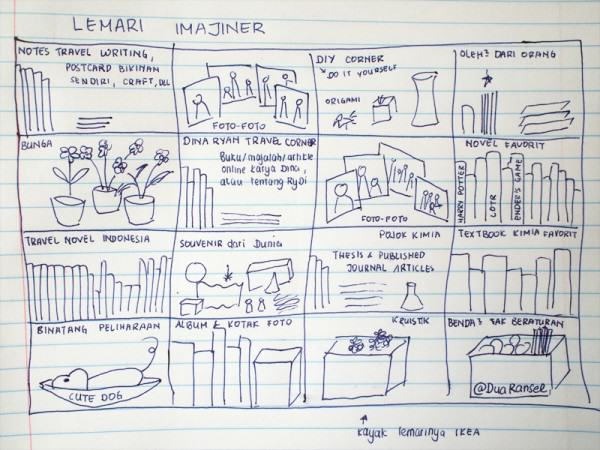 LEMARI IMAJINER
NOTES TRAVEL WRITING,
POSTCARD BIKINAN
SENDIRI, CRAFT, DLL
FOTO-FOTO
DIY CORNER
DO IT YOURSELF
ORIGAMI
OLEH² DARI ORANG
BUNGA
DINA RYAN TRAVEL CORNER
Buku/majalah/article
online karya Dina,
atau tentang RyDi
FOTO-FOTO
NOVEL FAVORIT
HARRY POTTER
LOTR
ENDER'S GAME
TRAVEL NOVEL INDONESIA
SOUVENIR dari Dunia
POJOK KIMIA
THESIS & PUBLISHED
JOURNAL ARTICLES
TEXTBOOK KIMIA FAVORIT
BINATANG PELIHARAAN
CUTE DOG
ALBUM & KOTAK FOTO
KRUISTIK
BENDA² TAK BERATURAN
@DuaRansel
kayak lemarinya IKEA